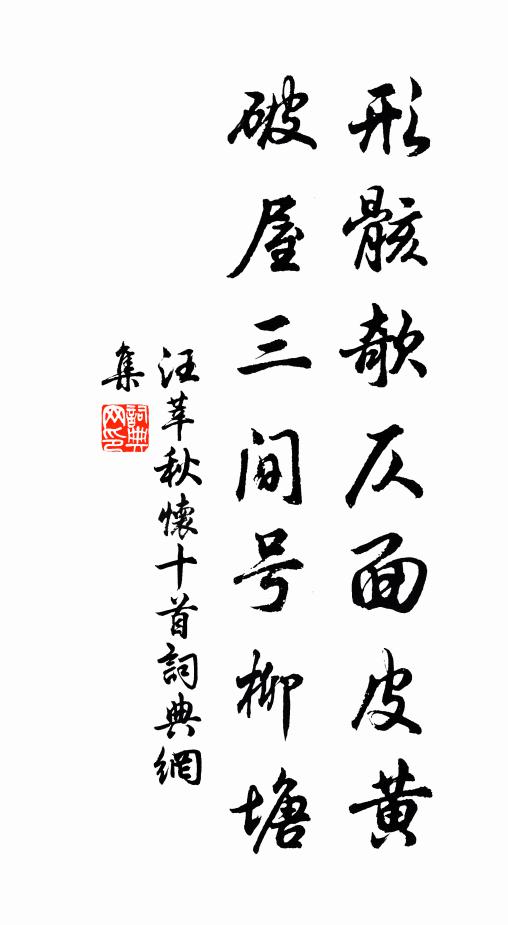 形骸欹仄面皮黄
破屋三间号柳塘
汪莘秋懷十首詞典網
集
詞典
网印